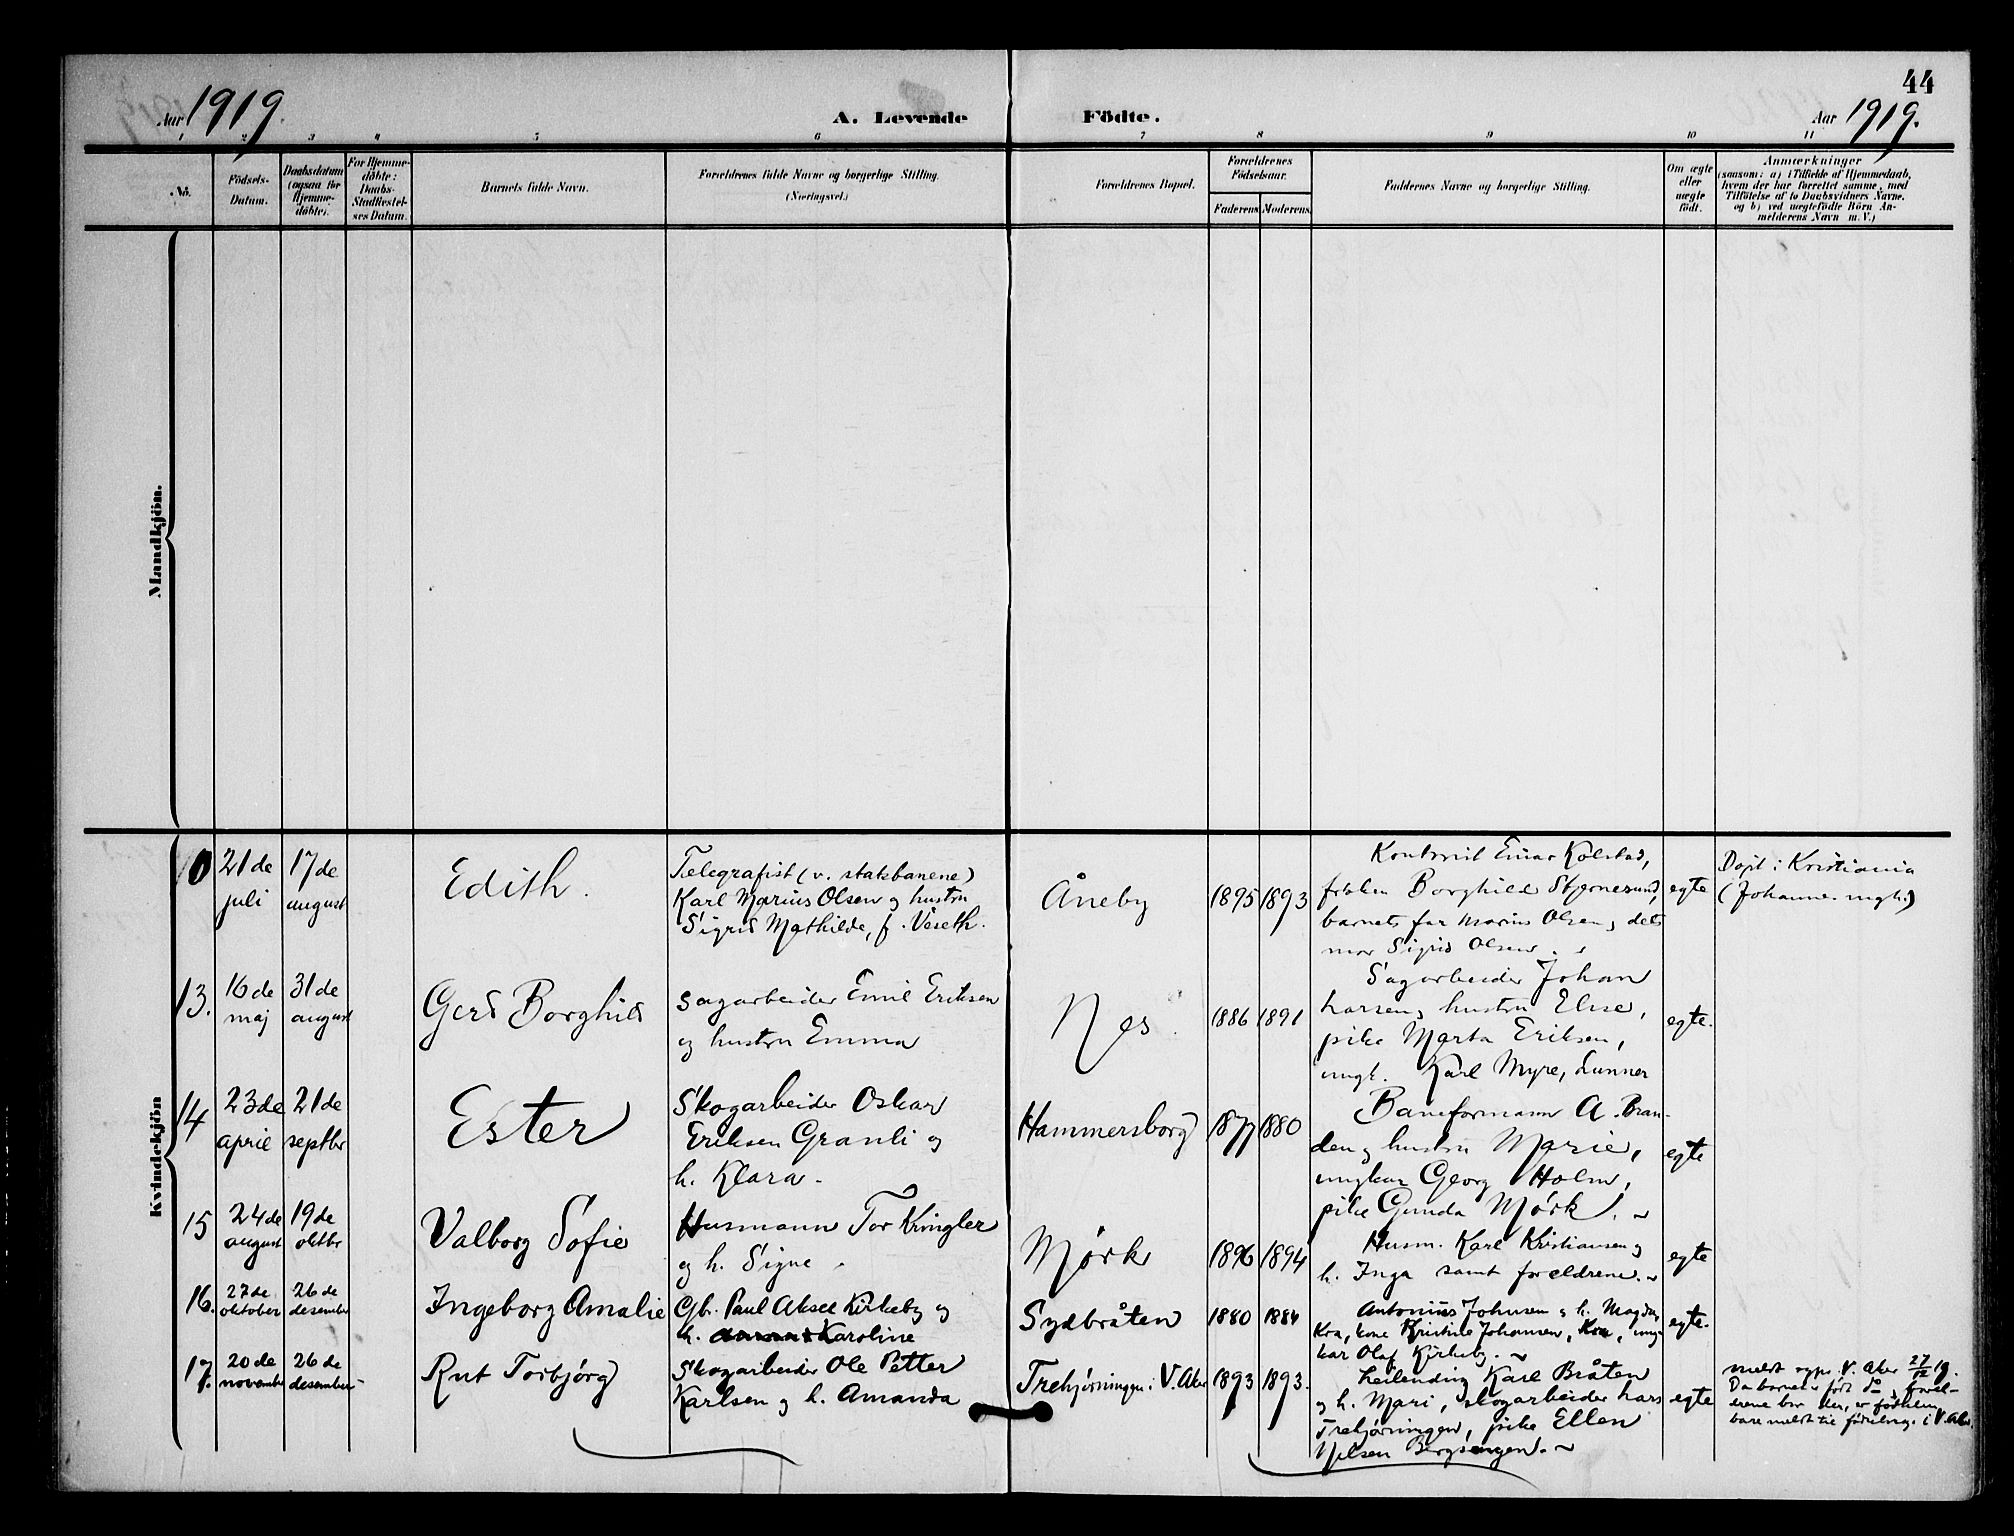 44
Aar 1919.
A. Levende
Födte.
Aar 1919.
1 2 3 4 5 6 7 8 9 10 11
No.
Födsels-
Datum.
Daabsdatum
(ogsaa for
Hjemme-
döbte).
For Hjemme-
döbte:
Daabs-
Stadfæstel-
ses Datum.
Barnets fulde Navn.
Forældrenes fulde Navne og borgerlige Stilling.
(Næringsvei.)
Forældrenes Bopæl.
Forældrenes
Födselsaar.
Faderens
Moderens.
Faddernes Navne og borgerlige Stilling.
Om ægte
eller
uægte
födt.
Anmærkninger
(saasom: a) i Tilfælde af Hjemmedaab,
hvem der har forrettet samme, med
Tilföielse af to Daabsvidners Navne.
og b) ved uægtefödte Börn An-
melderens Navn m. V.)
Mandkjön.
Kvindekjön
10
21 de
juli
17 de
august
Edith.
Telegrafist (v. statsbanene)
Karl Marius Olsen og hustru
Sigrid Mathilde, f.
Åneby
1895
1893
Einar Kolstad,
frøken Borghild Stjernesund,
barnets far Marius Olsen, dets
mor Sigrid Olsen.
egte
Døpt i Kristiania
(Johannes mgh.)
13.
16 de
maj
31 de
august
Gerd Borghild
Sagarbeider Emil Eriksen
og hustru Emma
Nes.
1886
1891
Sagarbeider Johan
Larsen, hustru Elise,
pike Marta Eriksen,
ungk. Karl Myre, Lunner
egte.
14
23 de
april
21 de
septbr
Ester
Skogarbeider Oskar
Eriksen Granli og
h. Klara.
Hammersborg
1877
1880
Baneformann A. Bran-
den, hustru Marie,
ungkar Georg Holm,
pike Gunda Mørk.
egte
15
24 de
august
19 de
oktbr
Valborg Sofie
Husmann Tor Kringler
og h. Signe.
Mørk
1896
1894
Husm. Karl Kristiansen og
h. Inga samt forældrene.
egte
16.
27 de
oktober
26 de
desember
Ingeborg Amalie
Gbr. Paul Aksel Kirkeby og
h. Karoline
Sydbråten
1880
1884
Antonius Johnsen, h. Magda,
Kra, kone Kristine Johansen, Kra, ung-
kar Olaf Kirkeby.
egte.
17.
20 de
november
26 de
desember
Rut Torbjørg
Skogarbeider Ole Petter
Karlsen og h. Amanda
Trehjørningen i V. Aker
1893
1893.
Leilending Karl Bråten
og h. Mari, skogarbeider Lars
Trehjørningen, pike Ellen
Nilsen Bergsengen.
egte
meldt sogpr. V. Aker 27/12 19.
Da barnet er født da, foræl-
drene bor der, er fødselen
bare meldt til fødselsreg. i V. Aker.